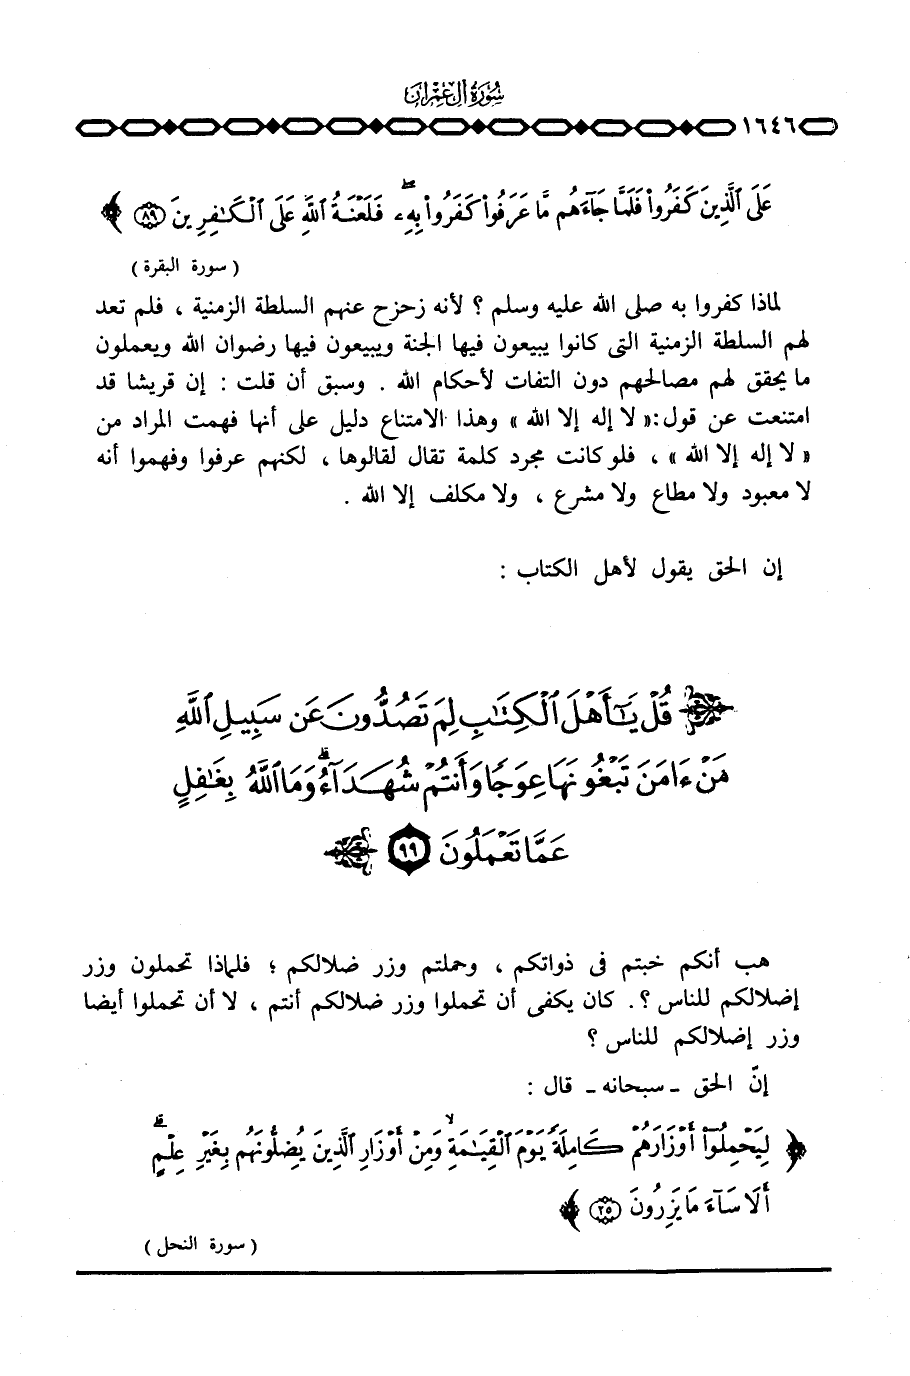 سُورَةُ آلِ عِمْرَانَ
١٦٤٦
عَلَى ٱلَّذِينَ كَفَرُوا۟ فَلَمَّا جَآءَهُم مَّا عَرَفُوا۟ كَفَرُوا۟ بِهِۦ ۚ فَلَعْنَةُ ٱللَّهِ عَلَى ٱلْكَـٰفِرِينَ ﴿٨٩﴾
( سورة البقرة )
لماذا كفروا به صلى الله عليه وسلم ؟ لأنه زحزح عنهم السلطة الزمنية ، فلم تعد
لهم السلطة الزمنية التى كانوا يبيعون فيها الجنة ويبيعون فيها رضوان الله ويعملون
ما يحقق لهم مصالحهم دون التفات لأحكام الله . وسبق أن قلت : إن قريشا قد
امتنعت عن قول : « لا إله إلا الله » وهذا الامتناع دليل على أنها فهمت المراد من
« لا إله إلا الله » ، فلو كانت مجرد كلمة تقال لقالوها ، لكنهم عرفوا وفهموا أنه
لا معبود ولا مطاع ولا مشرع ، ولا مكلف إلا الله .
إن الحق يقول لأهل الكتاب :
قُلْ يَـٰٓأَهْلَ ٱلْكِتَـٰبِ لِمَ تَصُدُّونَ عَن سَبِيلِ ٱللَّهِ
مَنْ ءَامَنَ تَبْغُونَهَا عِوَجًا وَأَنتُمْ شُهَدَآءُ ۗ وَمَا ٱللَّهُ بِغَـٰفِلٍ
عَمَّا تَعْمَلُونَ ٩٩
هب أنكم خبتم فى ذواتكم ، وحملتم وزر ضلالكم ؛ فلماذا تحملون وزر
إضلالكم للناس ؟ . كان يكفى أن تحملوا وزر ضلالكم أنتم ، لا أن تحملوا أيضا
وزر إضلالكم للناس ؟
إنّ الحق ـ سبحانه ـ قال :
﴿ لِيَحْمِلُوٓا۟ أَوْزَارَهُمْ كَامِلَةً يَوْمَ ٱلْقِيَـٰمَةِ ۙ وَمِنْ أَوْزَارِ ٱلَّذِينَ يُضِلُّونَهُم بِغَيْرِ عِلْمٍ ۗ
أَلَا سَآءَ مَا يَزِرُونَ ٢٥ ﴾
( سورة النحل )